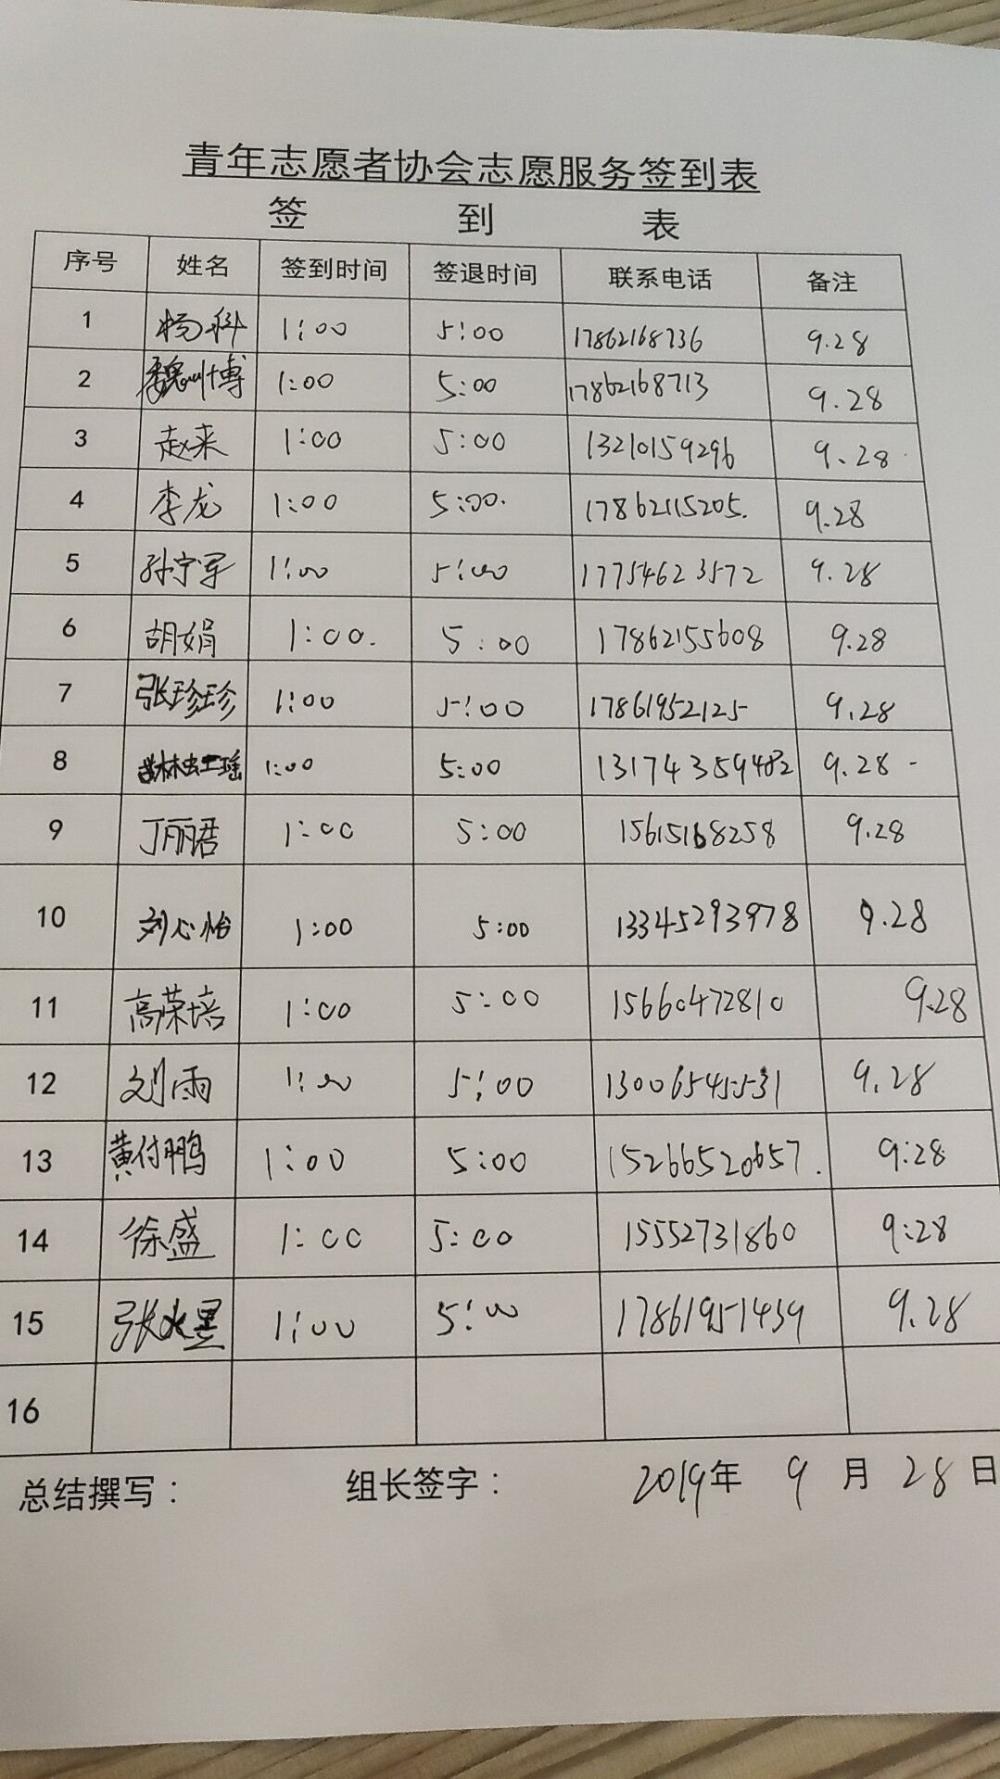 青年志愿者协会志愿服务签到表
签 到 表
序号 姓名 签到时间 签退时间 联系电话 备注
1 杨科 1:00 5:00 17862168736 9.28
2 魏川博 1:00 5:00 17862168713 9.28
3 赵来 1:00 5:00 13210159296 9.28
4 李龙 1:00 5:00. 17862115205. 9.28
5 孙宁军 1:00 5:00 17754623572 9.28
6 胡娟 1:00. 5:00 17862155608 9.28
7 张珍珍 1:00 5:00 17861952125 9.28
8 1:00 5:00 9.28
9 丁丽君 1:00 5:00 15615168258 9.28
10 刘心怡 1:00 5:00 13345293978 9.28
11 高荣培 1:00 5:00 15660472810 9.28
12 刘雨 1:00 5:00 13006545531 9.28
13 黄付鹏 1:00 5:00 15266520657. 9:28
14 徐盛 1:00 5:00 15552731860 9:28
15 张 1:00 5:00 17861951439 9.28
16
总结撰写： 组长签字： 2019年 9 月 28 日